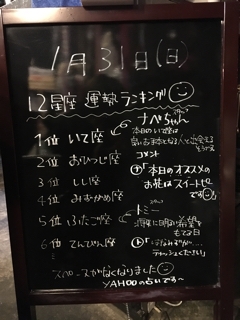 1月31日(日)
12星座 運勢ランキング
ナベちゃん
1位 いて座
本日のいて座は
2位 おひつじ座
コメント
3位 しし座
「本日のオススメの
お花はスイートピー
です
4位 みずがめ座
トミー
5位 ふたご座
将来に明るい希望を
もてる日
6位 てんびん座
スペースがなくなりました
YAHOOの占いです〜